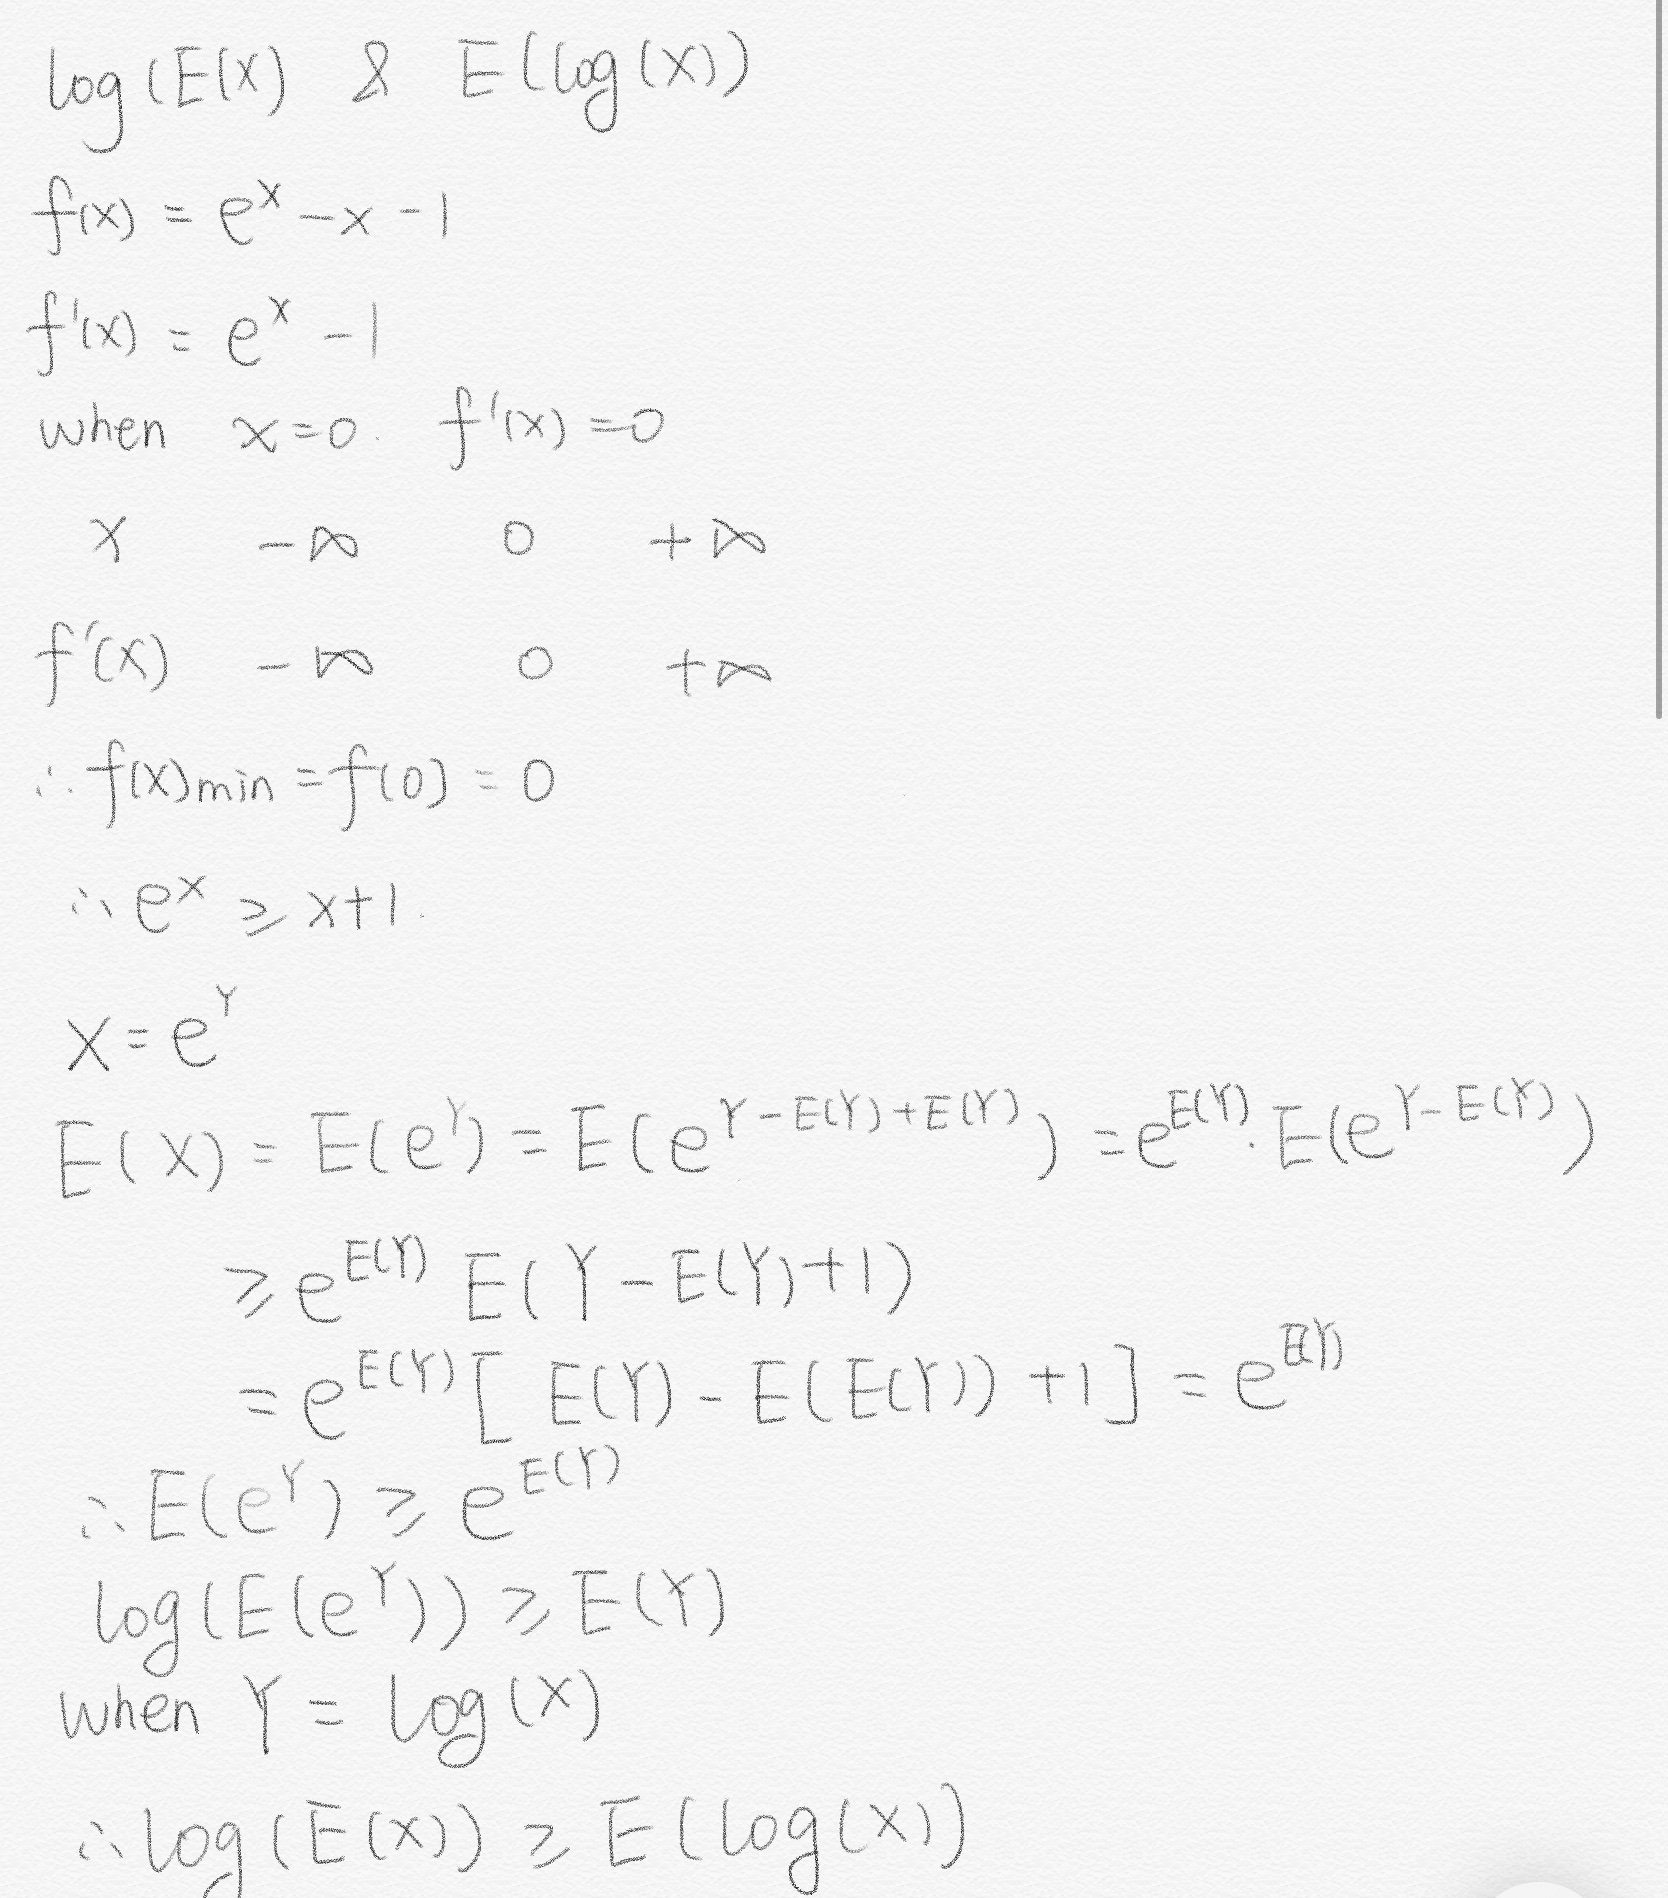 log(E(X) & E(log(X))
f(x) = e^x - x - 1
f'(x) = e^x - 1
when x=0. f'(x)=0
x -∞ 0 +∞
f'(x) -∞ 0 +∞
∴ f(x)min = f(0) = 0
∴ e^x ≥ x+1.
X = e^Y
E(X) = E(e^Y) = E(e^{Y-E(Y)+E(Y)}) = e^{E(Y)} · E(e^{Y-E(Y)})
≥ e^{E(Y)} E(Y-E(Y)+1)
= e^{E(Y)} [E(Y) - E(E(Y)) + 1] = e^{E(Y)}
∴ E(e^Y) ≥ e^{E(Y)}
log(E(e^Y)) ≥ E(Y)
when Y = log(X)
∴ log(E(X)) ≥ E(log(X))